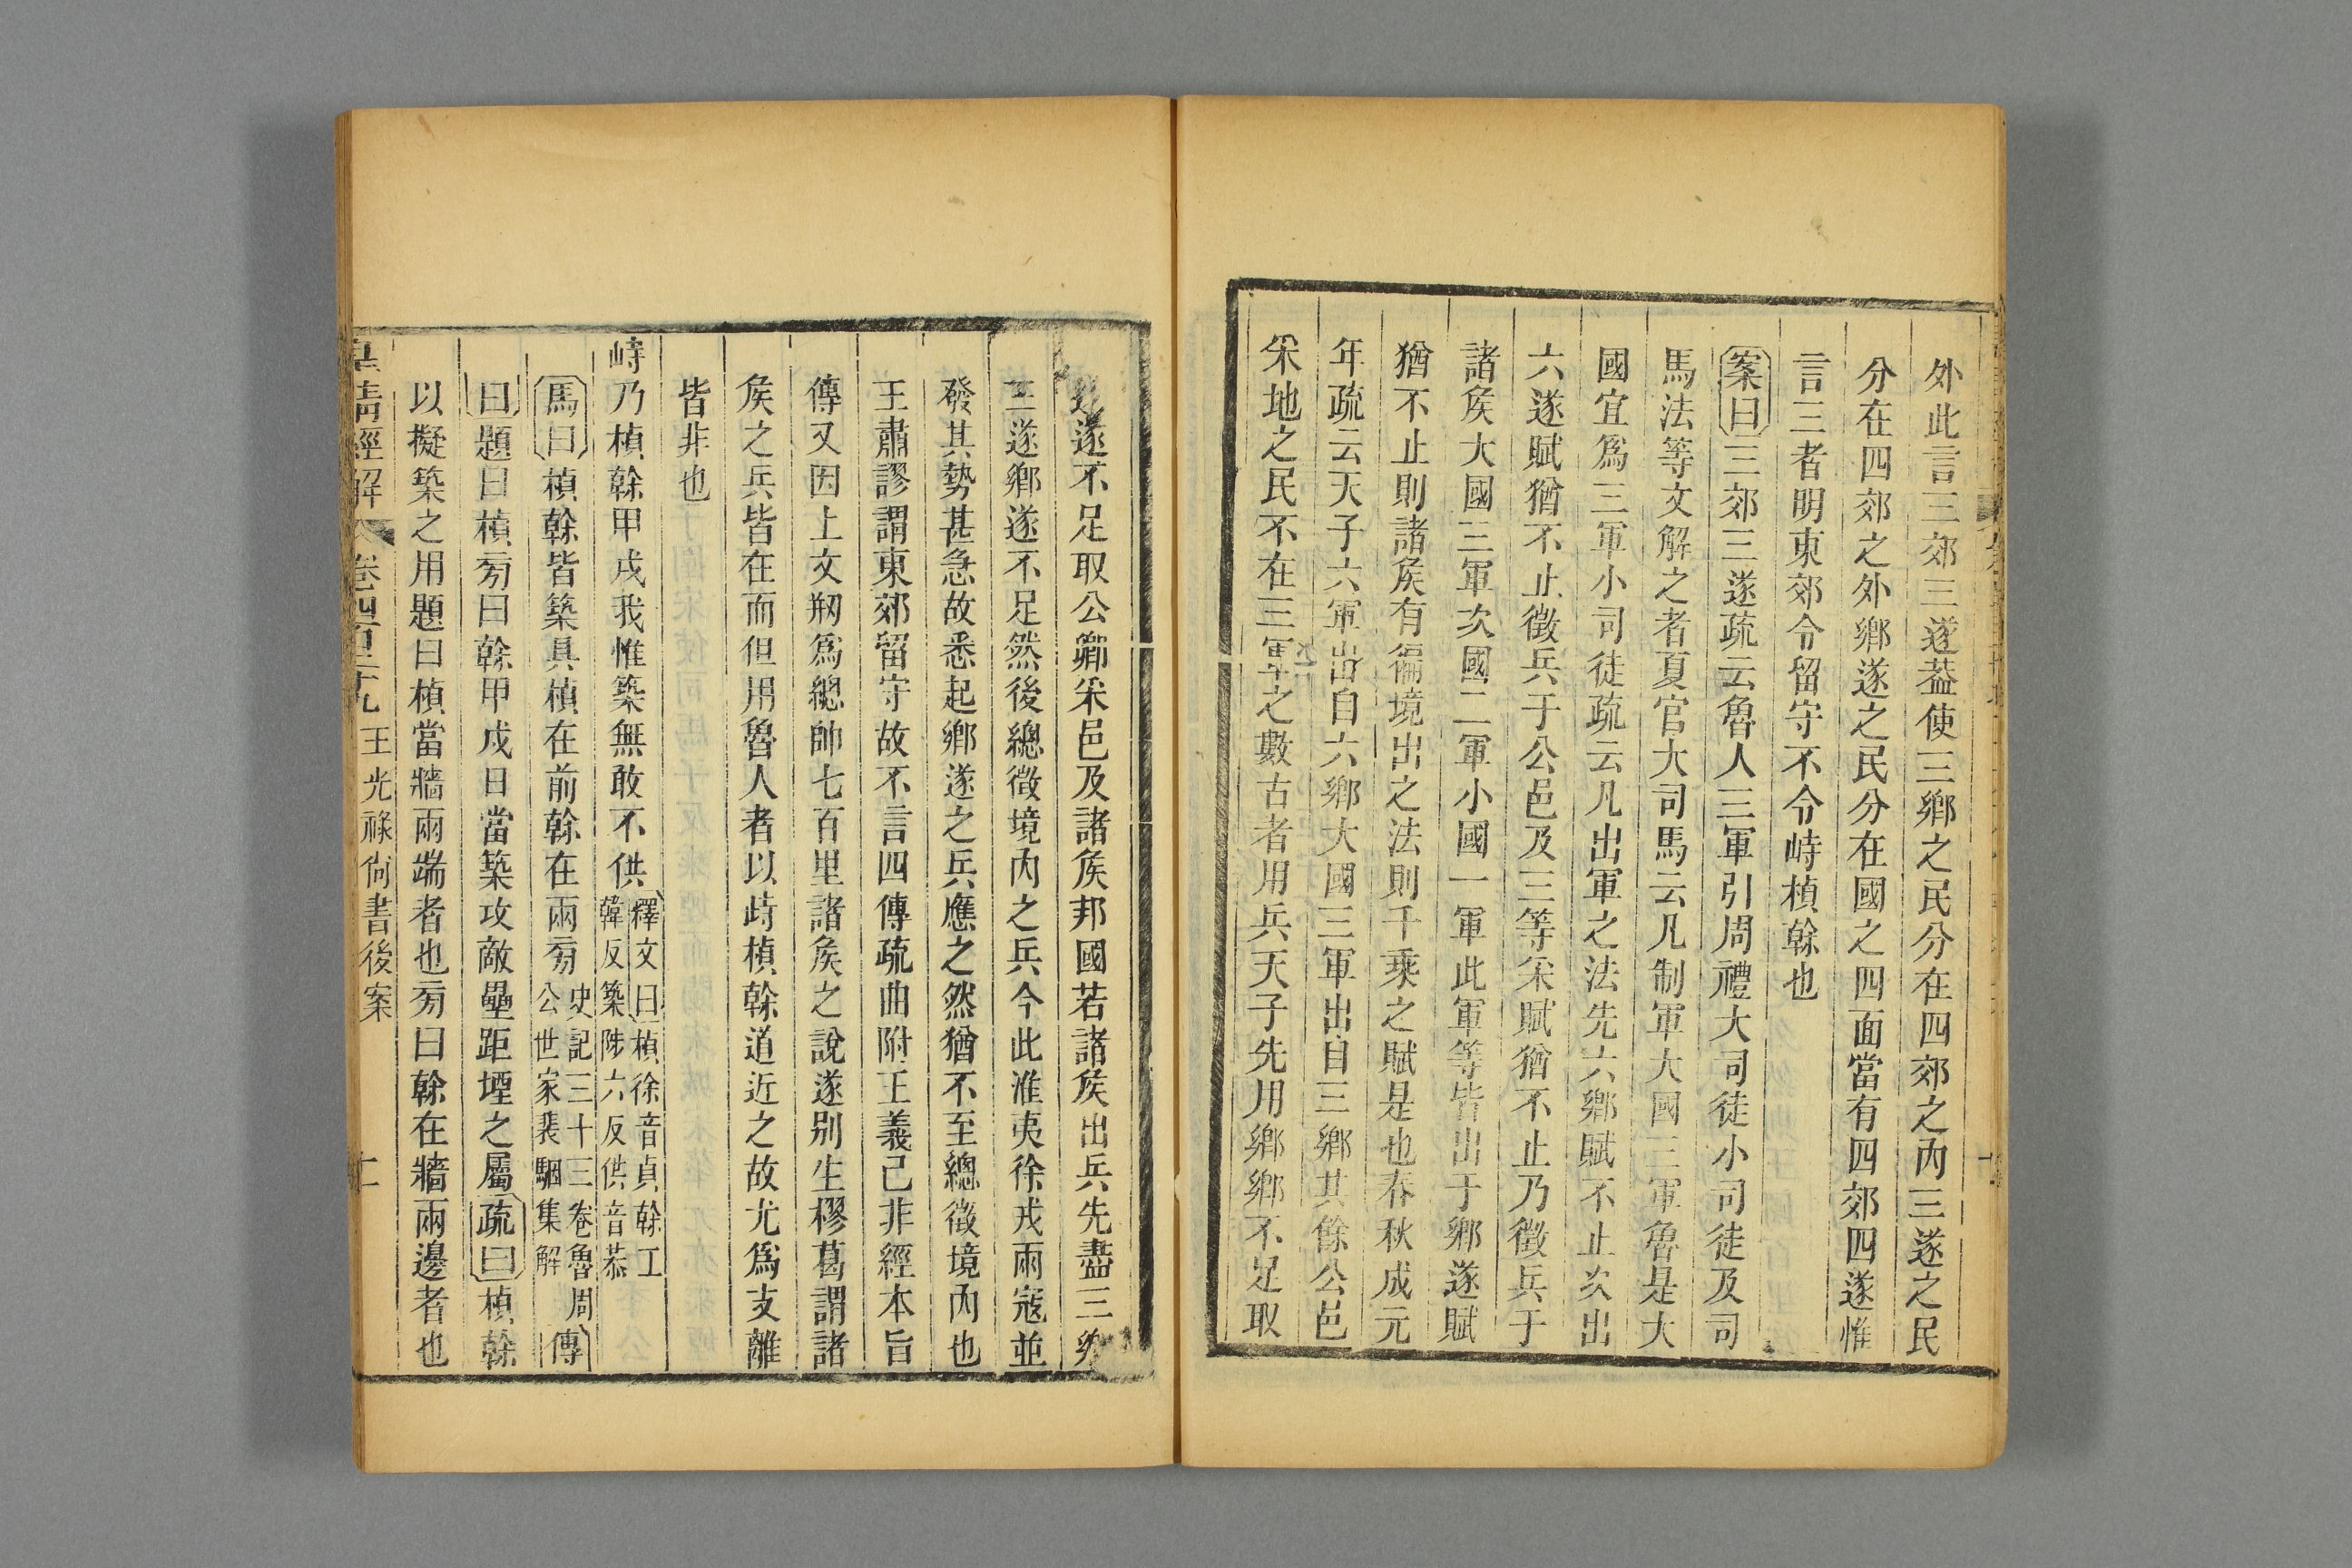 外此言三郊三遂葢使三鄉之民分在四郊之內三遂之民
分在四郊之外鄉遂之民分在國之四面當有四郊四遂惟
言三者明東郊令留守不令峙楨榦也
案曰三郊三遂疏云魯人三軍引周禮大司徒小司徒及司
馬法等文解之者夏官大司馬云凡制軍大國三軍魯是大
國宜爲三軍小司徒疏云凡出軍之法先六鄉賦不止次出
六遂賦猶不止徵兵于公邑及三等采賦猶不止乃徵兵于
諸矦大國三軍次國二軍小國一軍此軍等皆出于鄉遂賦
猶不止則諸矦有徧境出之法則千乘之賦是也春秋成元
年疏云天子六軍出自六鄉大國三軍出自三鄉其餘公邑
采地之民不在三軍之數古者用兵天子先用鄉鄉不足取
遂遂不足取公卿采邑及諸矦邦國若諸矦出兵先盡三鄉
三遂鄉遂不足然後總徵境內之兵今此淮夷徐戎兩寇並
發其勢甚急故悉起鄉遂之兵應之然猶不至總徵境內也
王肅謬謂東郊留守故不言四傳疏曲附王義已非經本旨
傳又因上文剏爲總帥七百里諸矦之說遂別生樛葛謂諸
矦之兵皆在而但用魯人者以峙楨榦道近之故尤爲支離
皆非也
峙乃楨榦甲戌我惟築無敢不供釋文曰楨徐音貞榦工
韓反築陟六反供音恭
馬曰楨榦皆築具楨在前榦在兩旁史記三十三卷魯周
公世家裴駰集解傳
曰題曰楨旁曰榦甲戌日當築攻敵壘距堙之屬疏曰楨榦
以擬築之用題曰楨當牆兩端者也旁曰榦在牆兩邊者也
皇清經解 卷四百二十九 王光祿尙書後案 十一